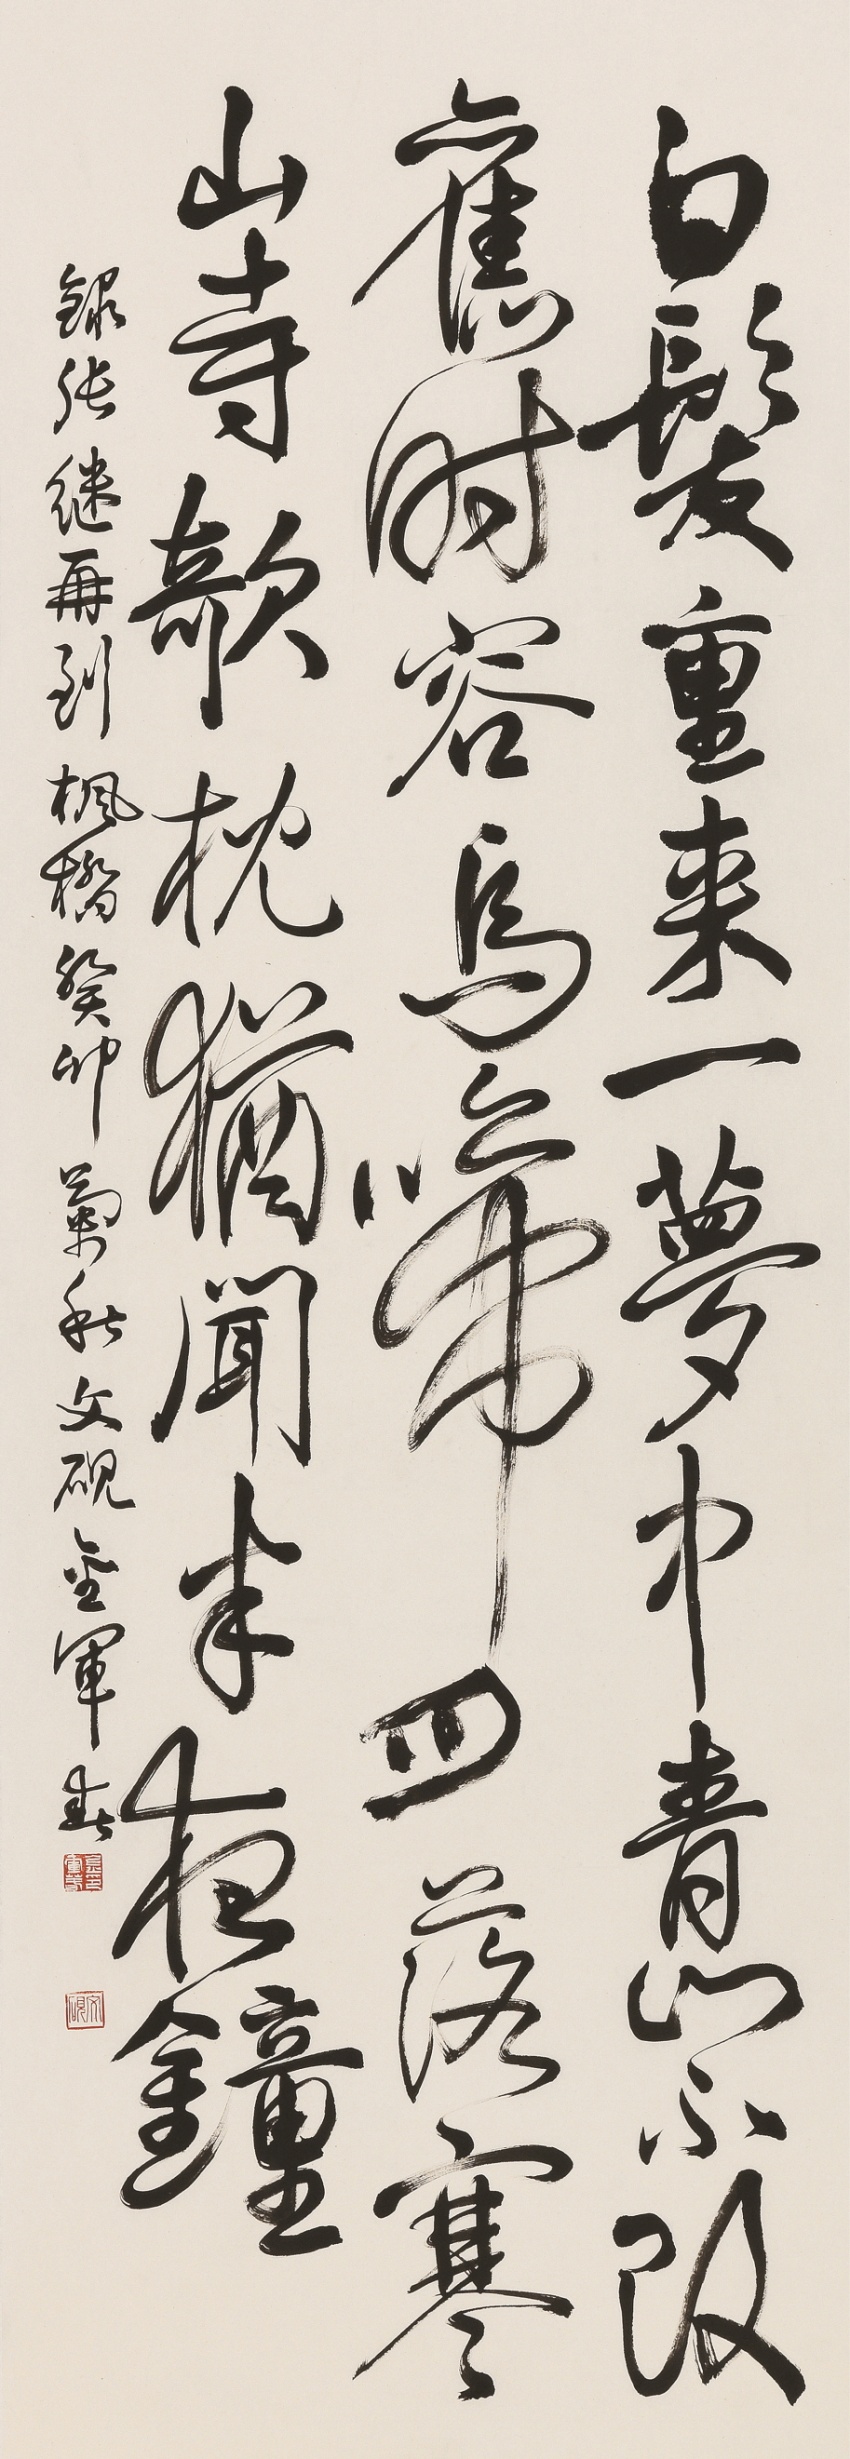 白髮重來一夢中青山不改
舊時容烏啼月落寒
山寺欹枕猶聞半夜鐘
錄張继再到楓橋癸卯菊秋文硯金軍書
文硯